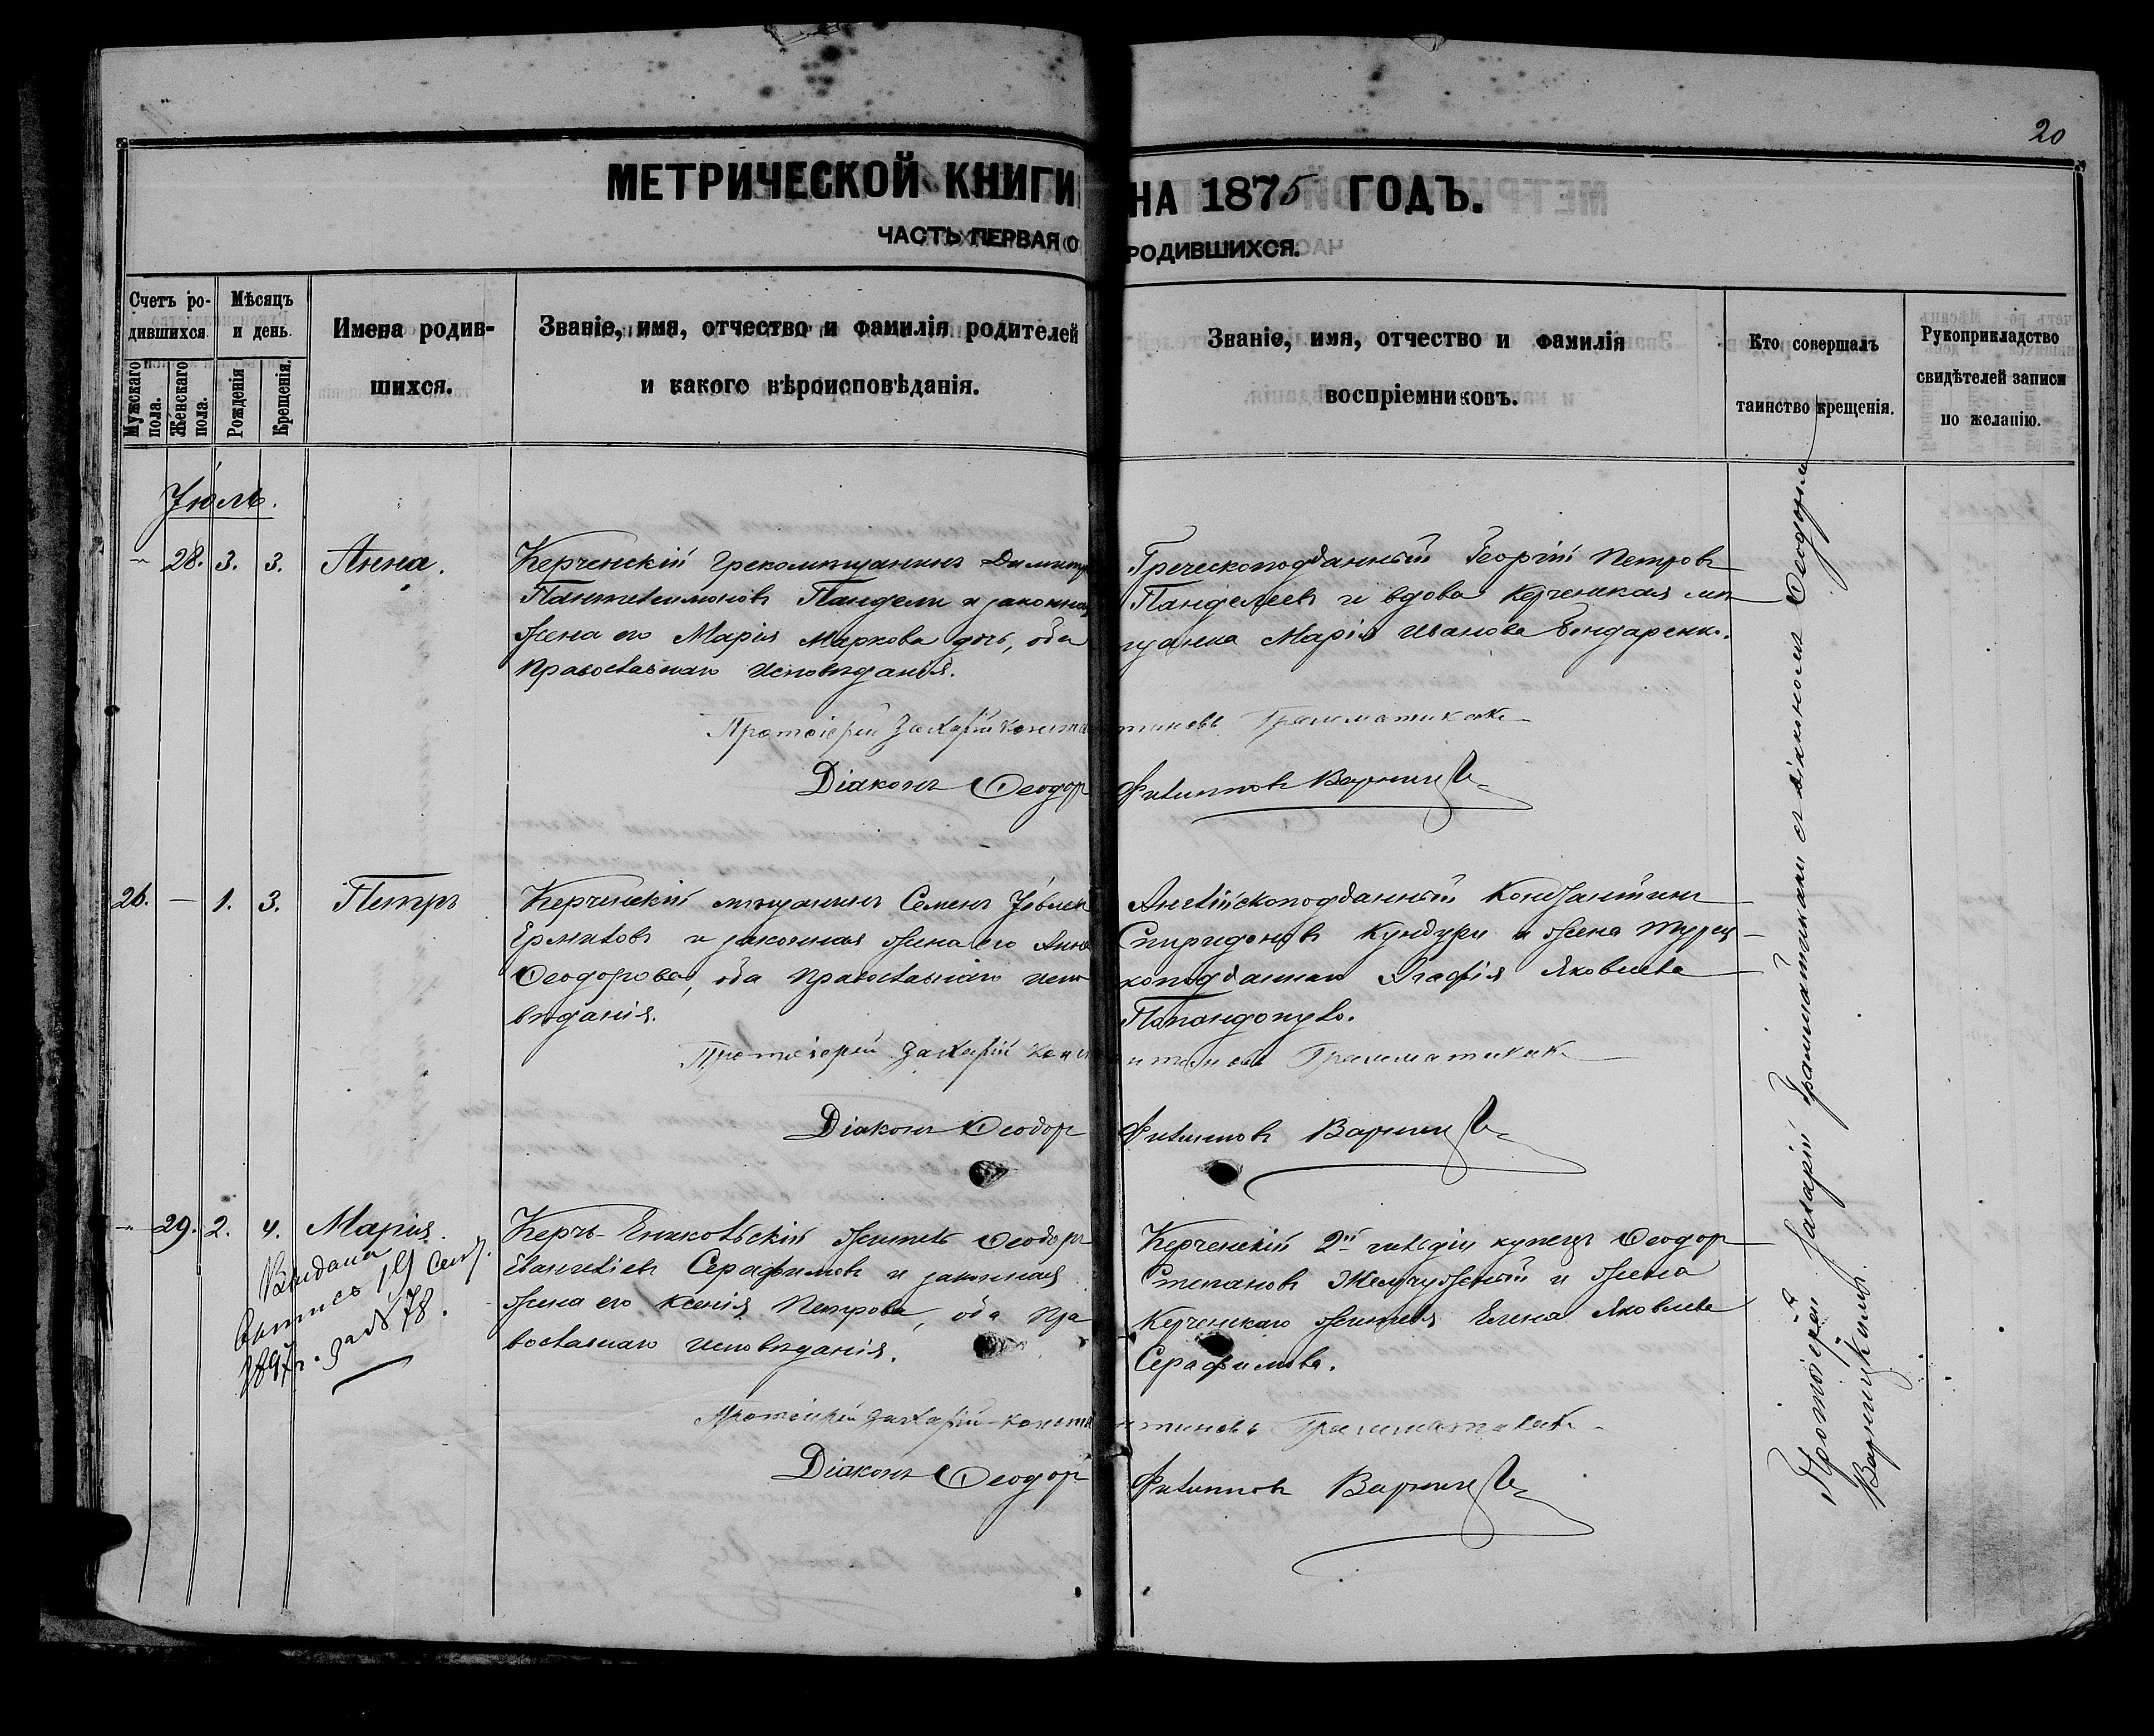 20
МЕТРИЧЕСКОЙ КНИГИ НА 1875 ГОДЪ.
ЧАСТЬ ПЕРВАЯ О РОДИВШИХСЯ.
Счетъ родившихся.
Мужскаго пола.
Женскаго пола.
Мѣсяцъ и день.
Рожденія
Крещенія.
Имена родив-
шихся.
Званіе, имя, отчество и фамилія родителей
и какого вѣроисповѣданія.
Званіе, имя, отчество и фамилія
воспріемниковъ.
Кто совершалъ
таинство крещенія.
Рукоприкладство
свидѣтелей записи
по желанію.
Іюль.
28. 3. 3. Анна.
Керченскій грекомѣщанинъ Димитр
Пантелимоновъ Пандели и законная
жена его Марія Маркова дочь, оба
православнаго исповѣданія.
Греческоподданный Георгій Петровъ
Панделеевъ и вдова Керченская мѣ
щанка Марія Иванова Бондаренко.
Протоіерей Захарій Константиновъ Грамматикакі
Діаконъ Ѳеодоръ Филипповъ Варниц
26. — 1. 3. Петръ
Керченскій мѣщанинъ Семенъ
Ермиловъ и законная жена его Анна
Ѳеодорова, оба православнаго испо
вѣданія.
Англійскоподданный Константинъ
Спиридоновъ Кундури и жена Турец
коподданнаго Агафія Яковлева
Папандопуло.
Протоіерей Захарій Константиновъ Грамматикаки
Діаконъ Ѳеодоръ Филипповъ Варниц
29. 2. 4. Марія.
Выдана
выпись 19 Сент.
1897 г. за № 78.
Керчь-Еникольскій житель Ѳеодоръ
Евангеліевъ Серафимовъ и законная
жена его Ксенія Петрова, оба пра
вославнаго исповѣданія.
Керченскій 2й гильдіи купецъ Ѳеодор
Степановъ Жемчужный и жена
Керченскаго жителя Елена Яковлева
Серафимова.
Протоіерей Захарій Константиновъ Грамматикаки
Діаконъ Ѳеодоръ Филипповъ Варниц
Протоіерей Захарій Грамматикаки съ діакономъ Ѳеодоромъ
Варницкимъ.